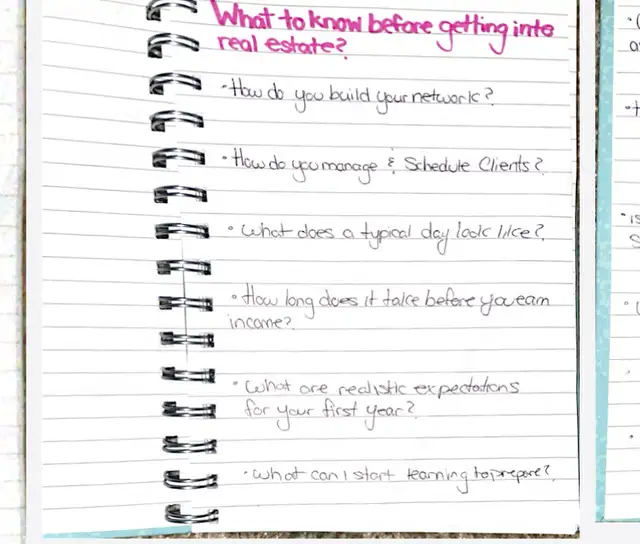 What to know before getting into
real estate?
• How do you build your network?
• How do you manage & Schedule Clients?
• What does a typical day look like?
• How long does it take before you earn
income?
• What are realistic expectations
for your first year?
• What can I start learning to prepare?